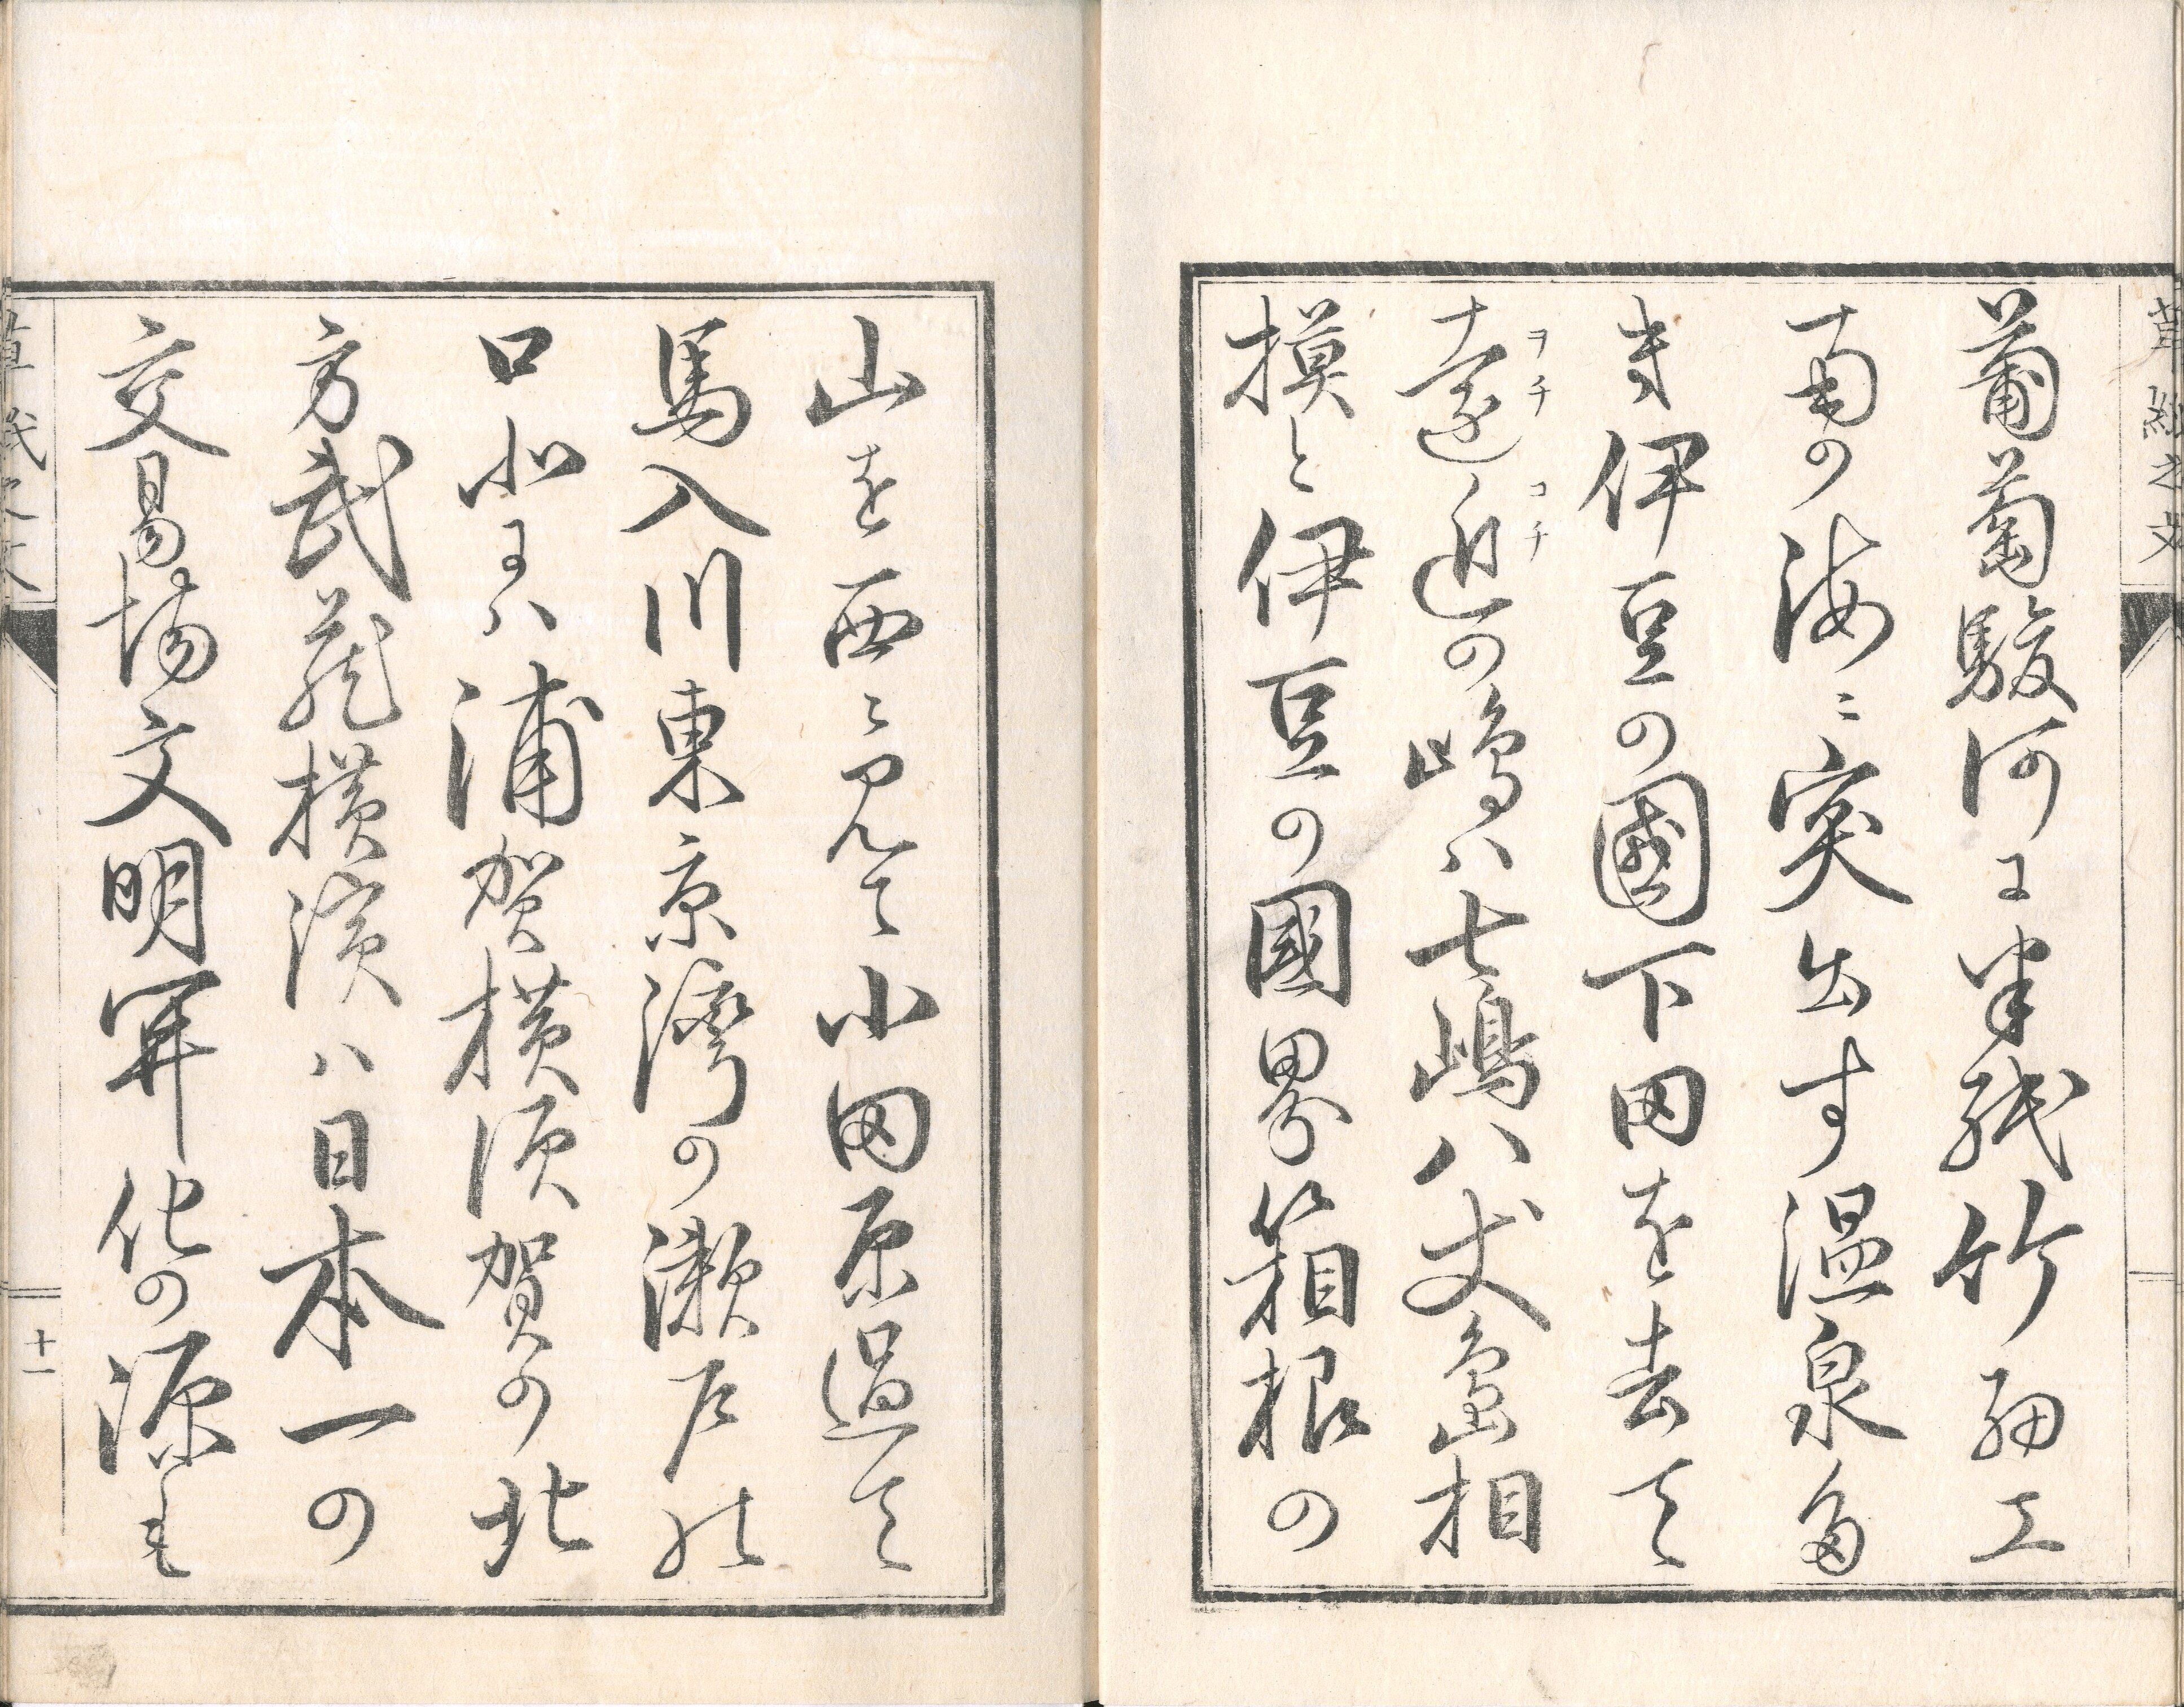 葡萄駿河に半紙竹細工
南の海ニ突出す温泉多
き伊豆の國下田を去て
遠近の嶋ハ七嶋八丈島相
ヲチ
コチ
摸と伊豆の國界箱根の
山を西ニ見て小田原過て
馬入川東京湾の瀬戸の
口北にハ浦賀横須賀の北
方武蔵横濱ハ日本一の
交易場文明開化の源も
十一